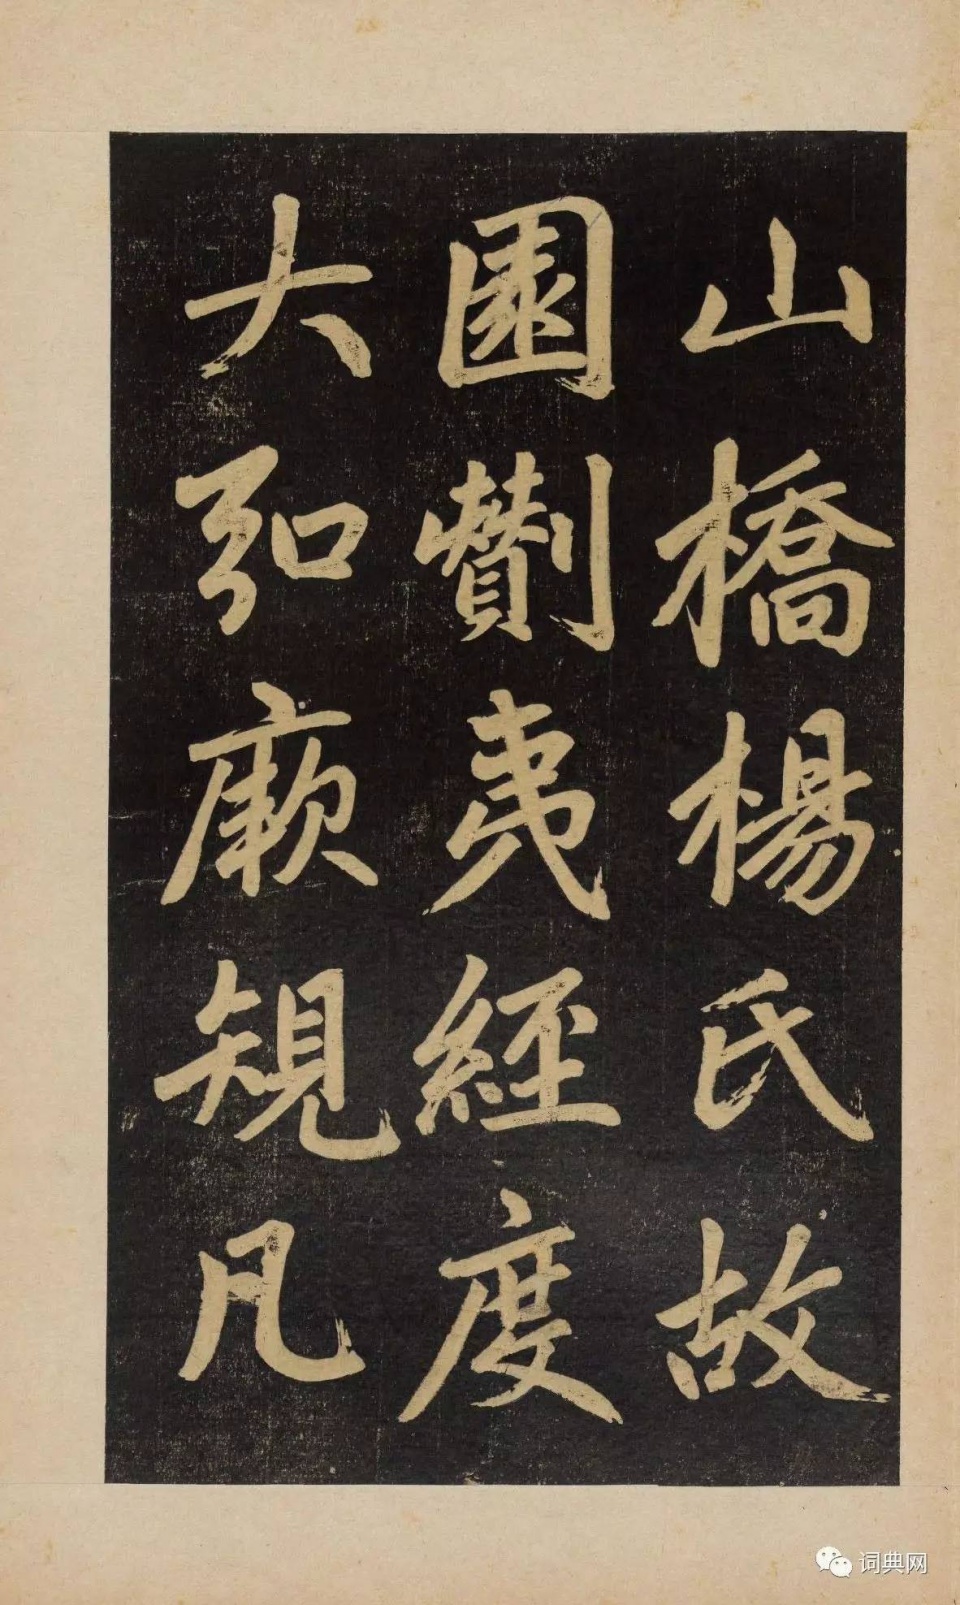 山橋楊氏故
園剗夷經度
大弘厥規凡
词典网